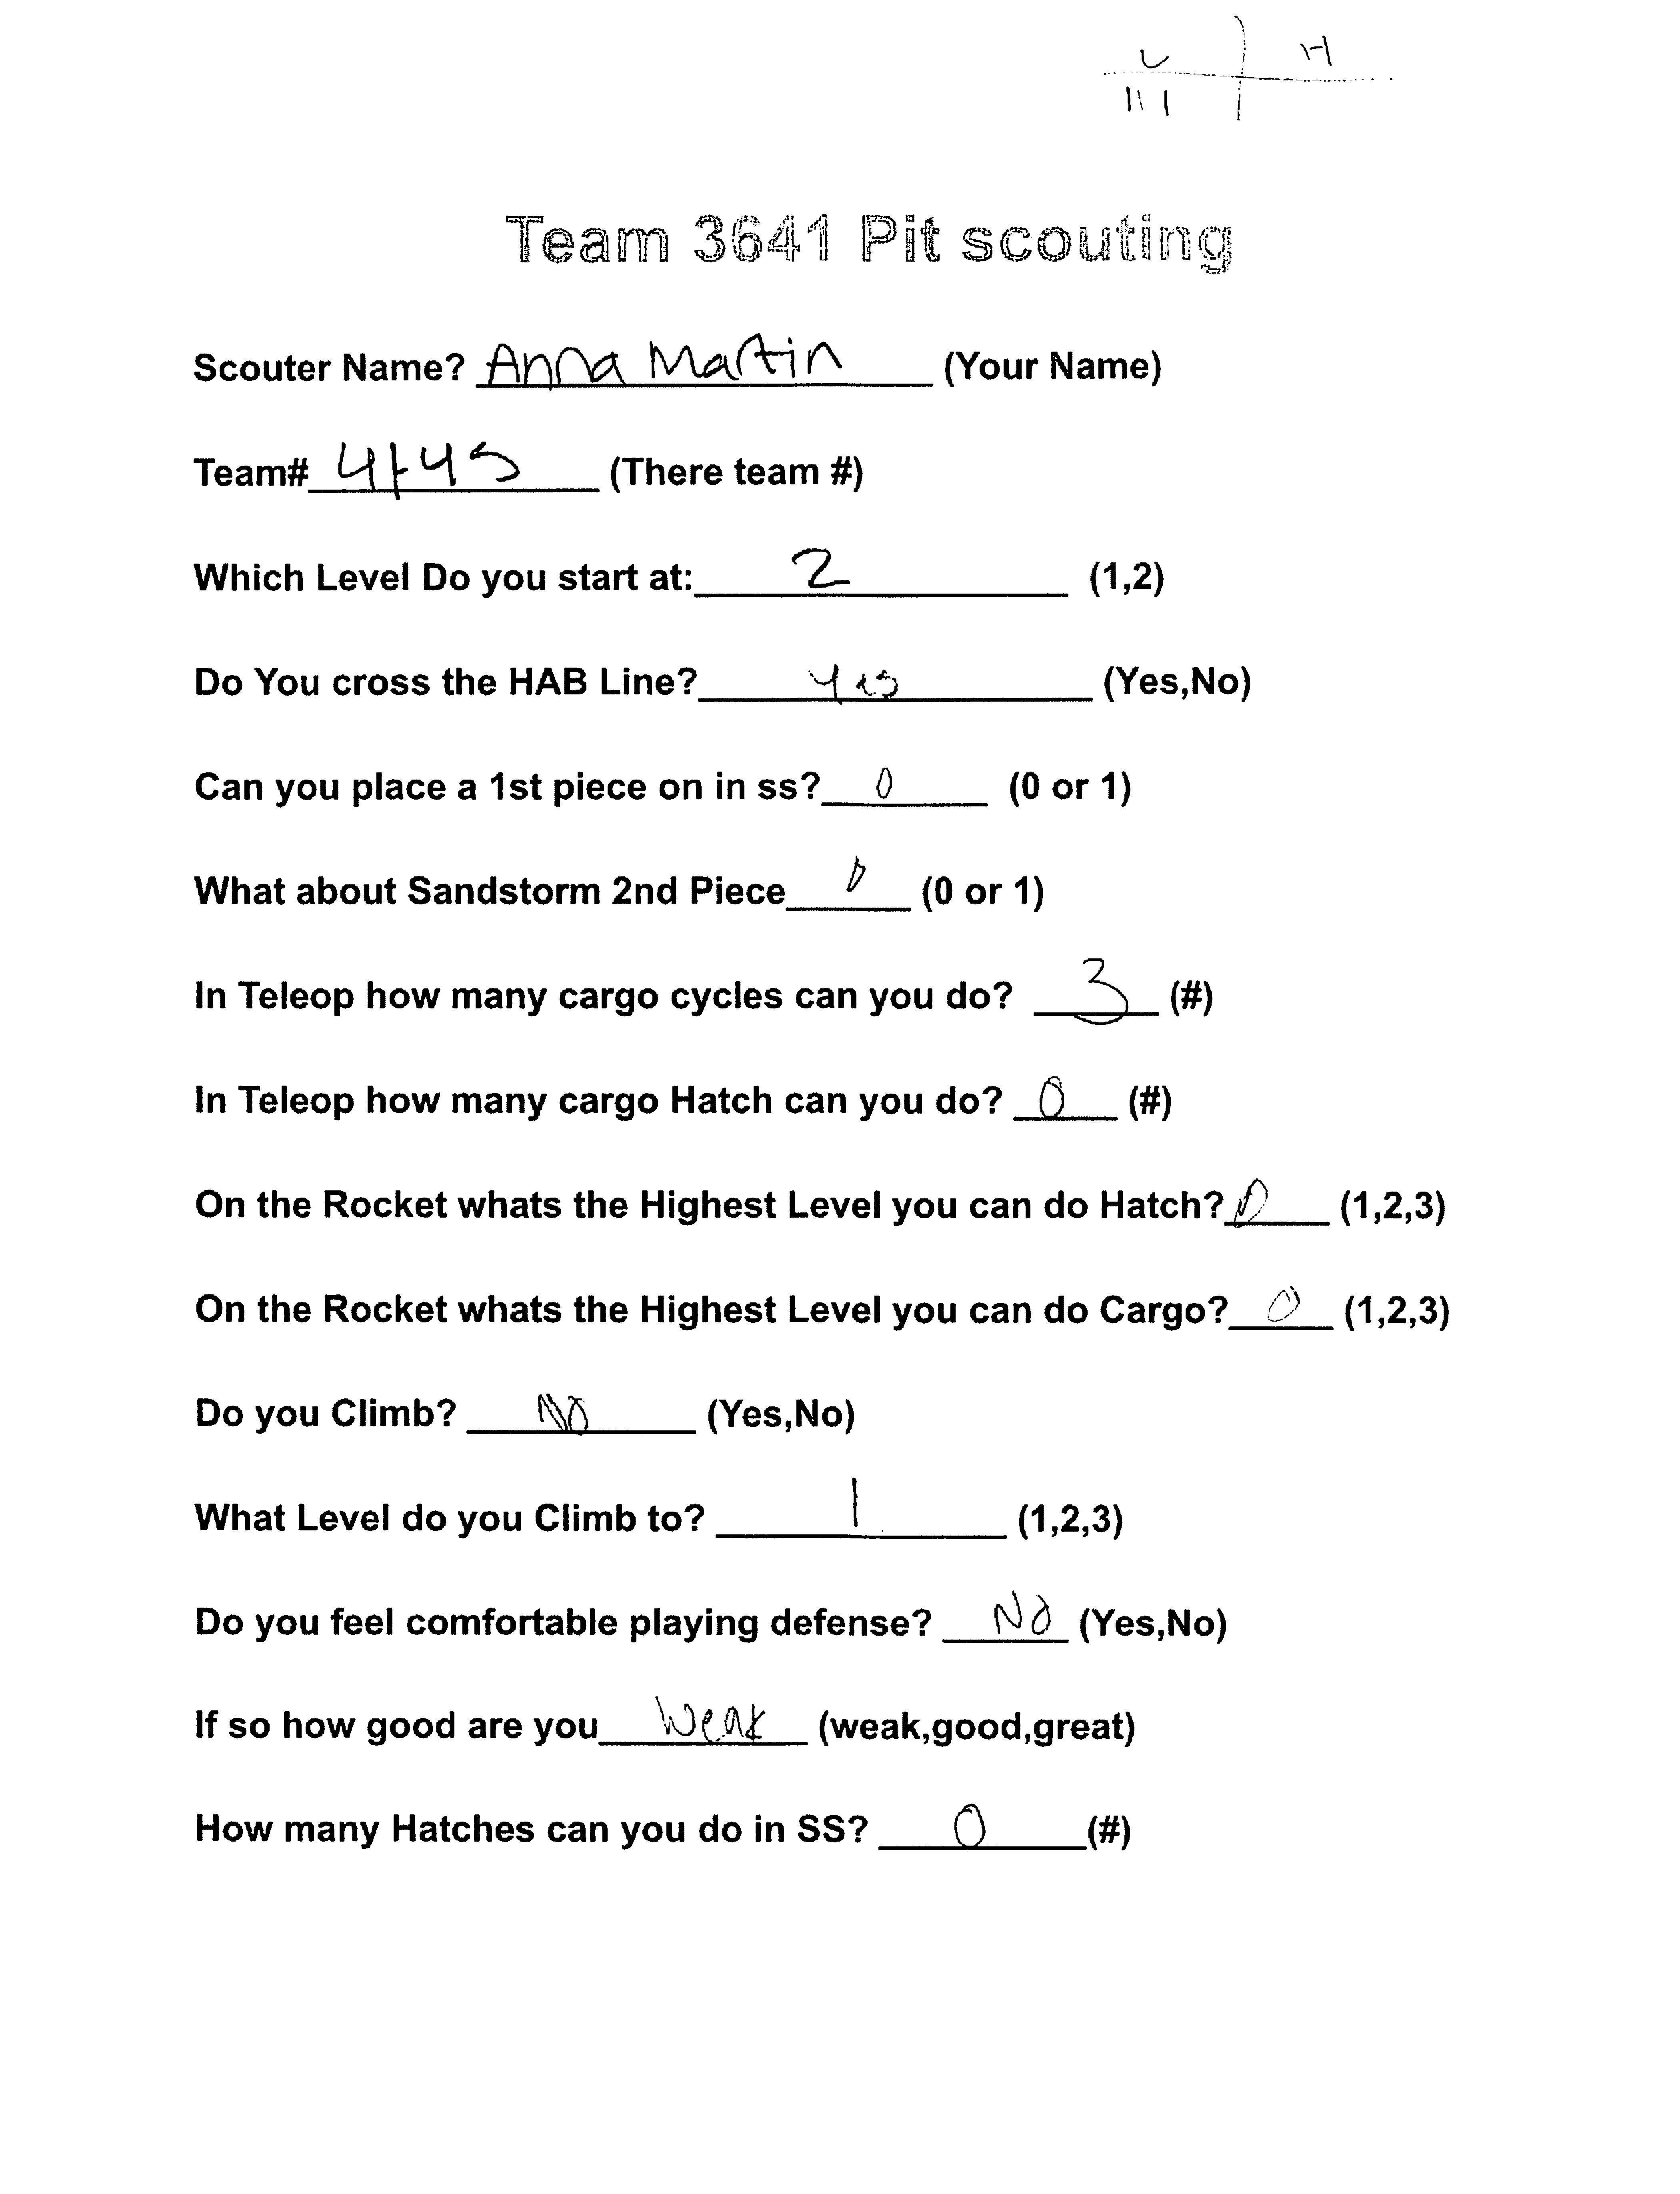 C H
III I
Team 3641 Pit scouting
Scouter Name? Anna Martin (Your Name)
Team# (There team #)
Which Level Do you start at: 2 (1,2)
Do You cross the HAB Line? Yes (Yes,No)
Can you place a 1st piece on in ss? 0 (0 or 1)
What about Sandstorm 2nd Piece 0 (0 or 1)
In Teleop how many cargo cycles can you do? 3 (#)
In Teleop how many cargo Hatch can you do? 0 (#)
On the Rocket whats the Highest Level you can do Hatch? 0 (1,2,3)
On the Rocket whats the Highest Level you can do Cargo? 0 (1,2,3)
Do you Climb? No (Yes,No)
What Level do you Climb to? 1 (1,2,3)
Do you feel comfortable playing defense? No (Yes,No)
If so how good are you Weak (weak,good,great)
How many Hatches can you do in SS? 0 (#)